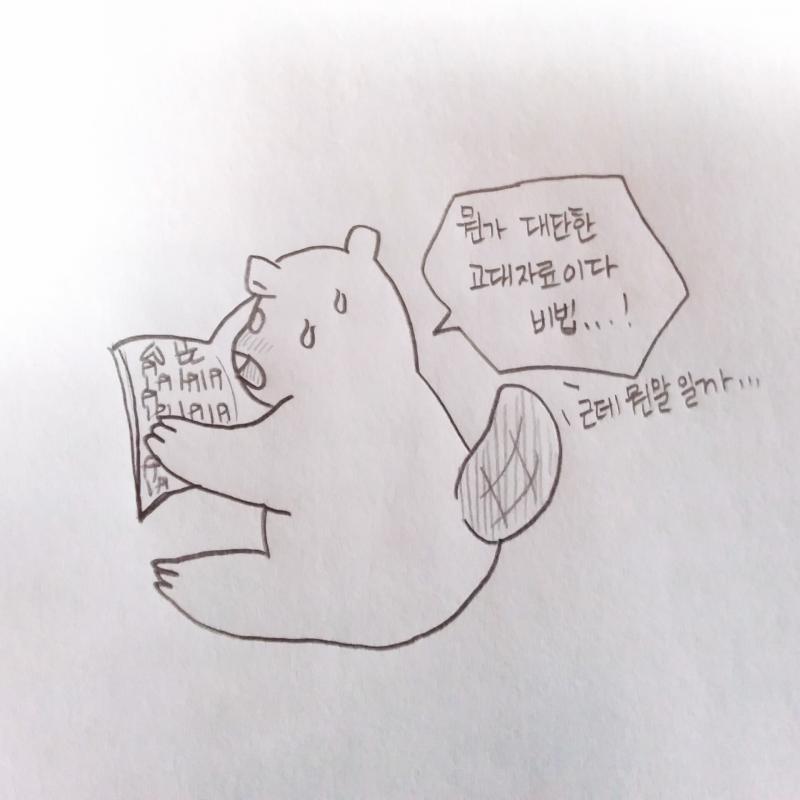 뭔가 대단한
고대자료이다
비법...!
근데 뭔말 일까...